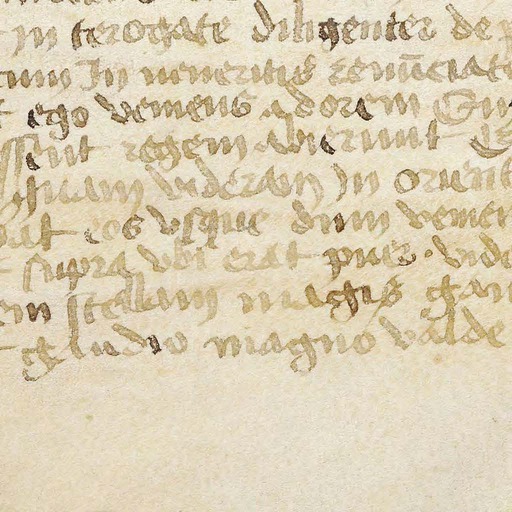 t in terogate diligenter de p
cum In ueneritis renūciate
t ego veniens adorem Qu
ssent regem abierunt
quam viderant In orient
bat eos vsque dum venien
t supra vbi erat puer · vide
em stellam magis gau
t gaudio magno valde